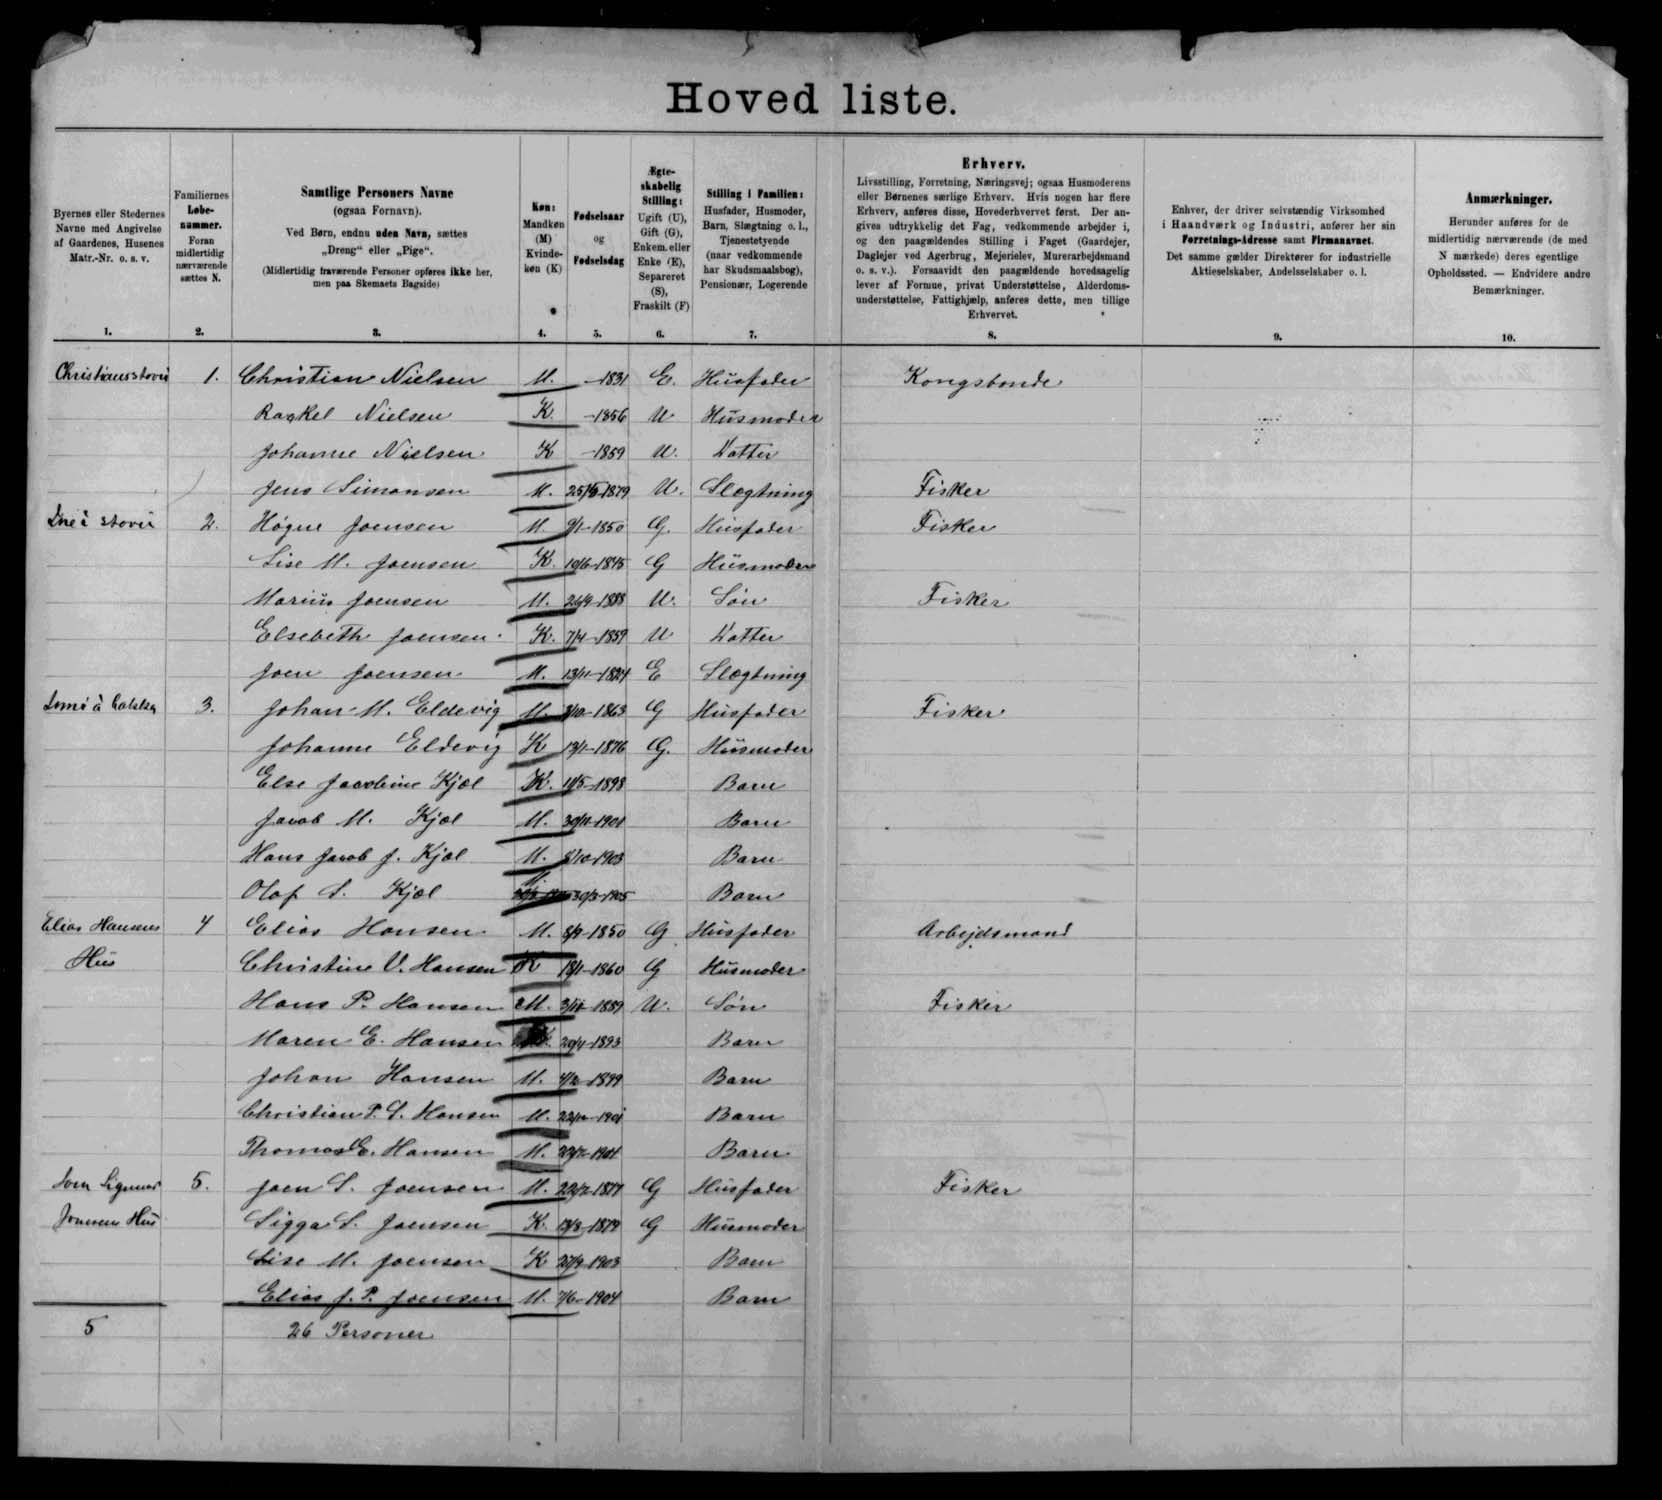 Hoved liste.
Byernes eller Stedernes
Navne med Angivelse
af Gaardenes, Husenes
Matr.-Nr. o. s. v.
1.
Familiernes
Løbe-
nummer.
Foran
midlertidig
nærværende
sættes N.
2.
Samtlige Personers Navne
(ogsaa Fornavn).
Ved Børn, endnu uden Navn, sættes
„Dreng“ eller „Pige“.
(Midlertidig fraværende Personer opføres ikke her,
men paa Skemaets Bagside)
3.
Køn:
Mandkøn
(M)
Kvinde-
køn (K)
4.
Fødselsaar
og
Fødselsdag
5.
Ægte-
skabelig
Stilling:
Ugift (U),
Gift (G),
Enkem. eller
Enke (E),
Separeret
(S),
Fraskilt (F)
6.
Stilling i Familien:
Husfader, Husmoder,
Barn, Slægtning o. l.,
Tjenestetyende
(naar vedkommende
har Skudsmaalsbog),
Pensionær, Logerende
7.
Erhverv.
Livsstilling, Forretning, Næringsvej; ogsaa Husmoderens
eller Børnenes særlige Erhverv. Hvis nogen har flere
Erhverv, anføres disse, Hovederhvervet først. Der an-
gives udtrykkelig det Fag, vedkommende arbejder i,
og den paagældendes Stilling i Faget (Gaardejer,
Daglejer ved Agerbrug, Mejerielev, Murerarbejdsmand
o. s. v.). Forsaavidt den paagældende hovedsagelig
lever af Formue, privat Understøttelse, Alderdoms-
understøttelse, Fattighjælp, anføres dette, men tillige
Erhvervet.
8.
Enhver, der driver selvstændig Virksomhed
i Haandværk og Industri, anfører her sin
Forretnings-Adresse samt Firmanavnet.
Det samme gælder Direktører for industrielle
Aktieselskaber, Andelsselskaber o. l.
9.
Anmærkninger.
Herunder anføres for de
midlertidig nærværende (de med
N mærkede) deres egentlige
Opholdssted. — Endvidere andre
Bemærkninger.
10.
1. Christian Nielsen M. -1831 E. Husfader Kongsbonde
Rackel Nielsen K. -1856 U Husmoder
Johanne Nielsen K -1859 U. Datter
Jens Simonsen M. 1879 U. Slægtning Fisker
2. Høgne Joensen M. 9/1-1850 G. Husfader Fisker
Lise M. Joensen K. 10/6-1845 G Husmoder
Marius Joensen M. 1888 U. Søn Fisker
Elsebeth Joensen K. 7/4-1889 U Datter
Joen Joensen M. 13/11-1824 E Slægtning
3. Johan M. Eldevig M. 1863 G Husfader Fisker
Johanne Eldevig K 13/1-1876 G. Husmoder
Else Jacobine Kjøl K. 11/5-1898 Barn
Jacob M. Kjøl M. 30/11-1901 Barn
Hans Jacob J. Kjøl M. 8/10-1903 Barn
Olaf S. Kjøl 30/3-1905 Barn
Elias Hansens 4 Elias Hansen M. 1850 G Husfader Arbejdsmand
Hus Christine V. Hansen K 18/1-1860 G Husmoder
Hans P. Hansen M. 1889 U. Søn Fisker
Maren E. Hansen K. 20/4-1893 Barn
Johan Hansen M. 4/2-1899 Barn
Christian P. S. Hansen M. 1901 Barn
Thomas E. Hansen M. 1904 Barn
5. Joen S. Joensen M. 22/2-1877 G Husfader Fisker
Hus Sigga S. Joensen K. 1879 G Husmoder
Lise M. Joensen K 27/9-1903 Barn
Elias J. P. Joensen M. 7/6-1904 Barn
5 26 Personer